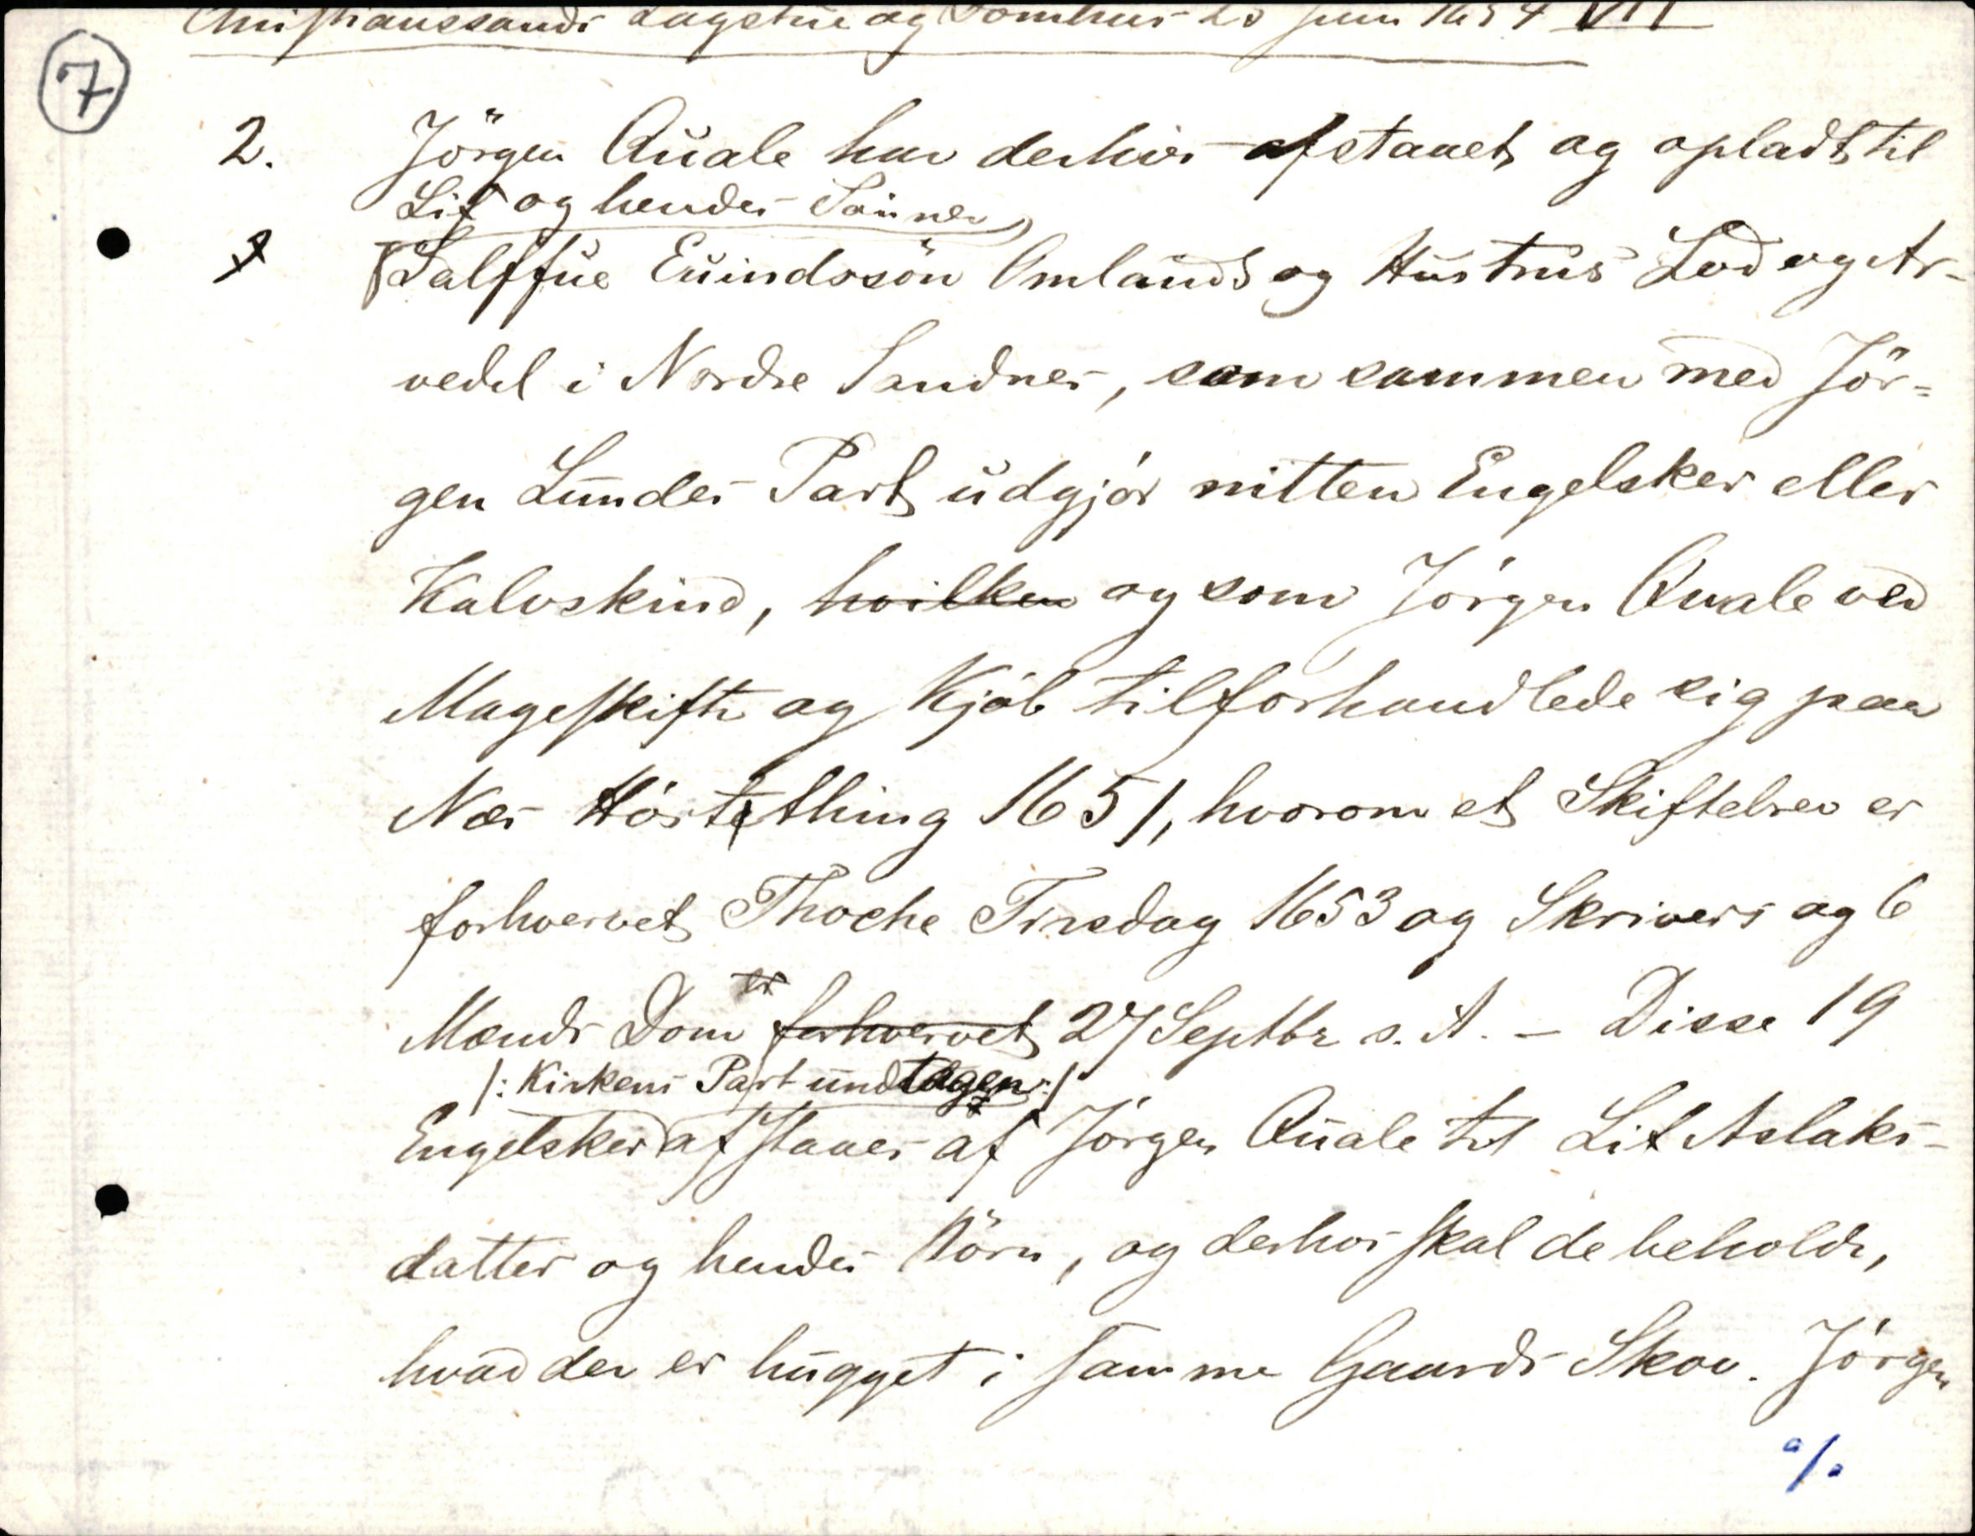 Christianssands Lagstue og Domhus 20 Juni 1654 VII
7
2. Jörgen Quale har derhos afstaaet og opladt til
Lif og hendes Sönner,
Salffue Euindssön Omlands og Hustrus Lod og Ar-
vedel i Nordre Sandnes, som sammen med Jör-
gen Lundes Part udgjör nitten Engelsker eller
Kalvskind, hvilken og som Jörgen Quale ved
Mageskifte og Kjöb tilforhandlede sig paa
Nes Höstething 1651, hvorom et Skiftebrev er
forhvervet Thoche Tirsdag 1653 og Skrivers og 6
Mænds Dom er forhvervet 27 Septbr s. A. – Disse 19
/: Kirkens Part undtagen :/
Engelsker afstaaes af Jörgen Quale til Lif Aslaks-
datter og hendes Börn, og derhos skal de beholde,
hvad der er hugget i samme Gaards Skov. Jörgen
%